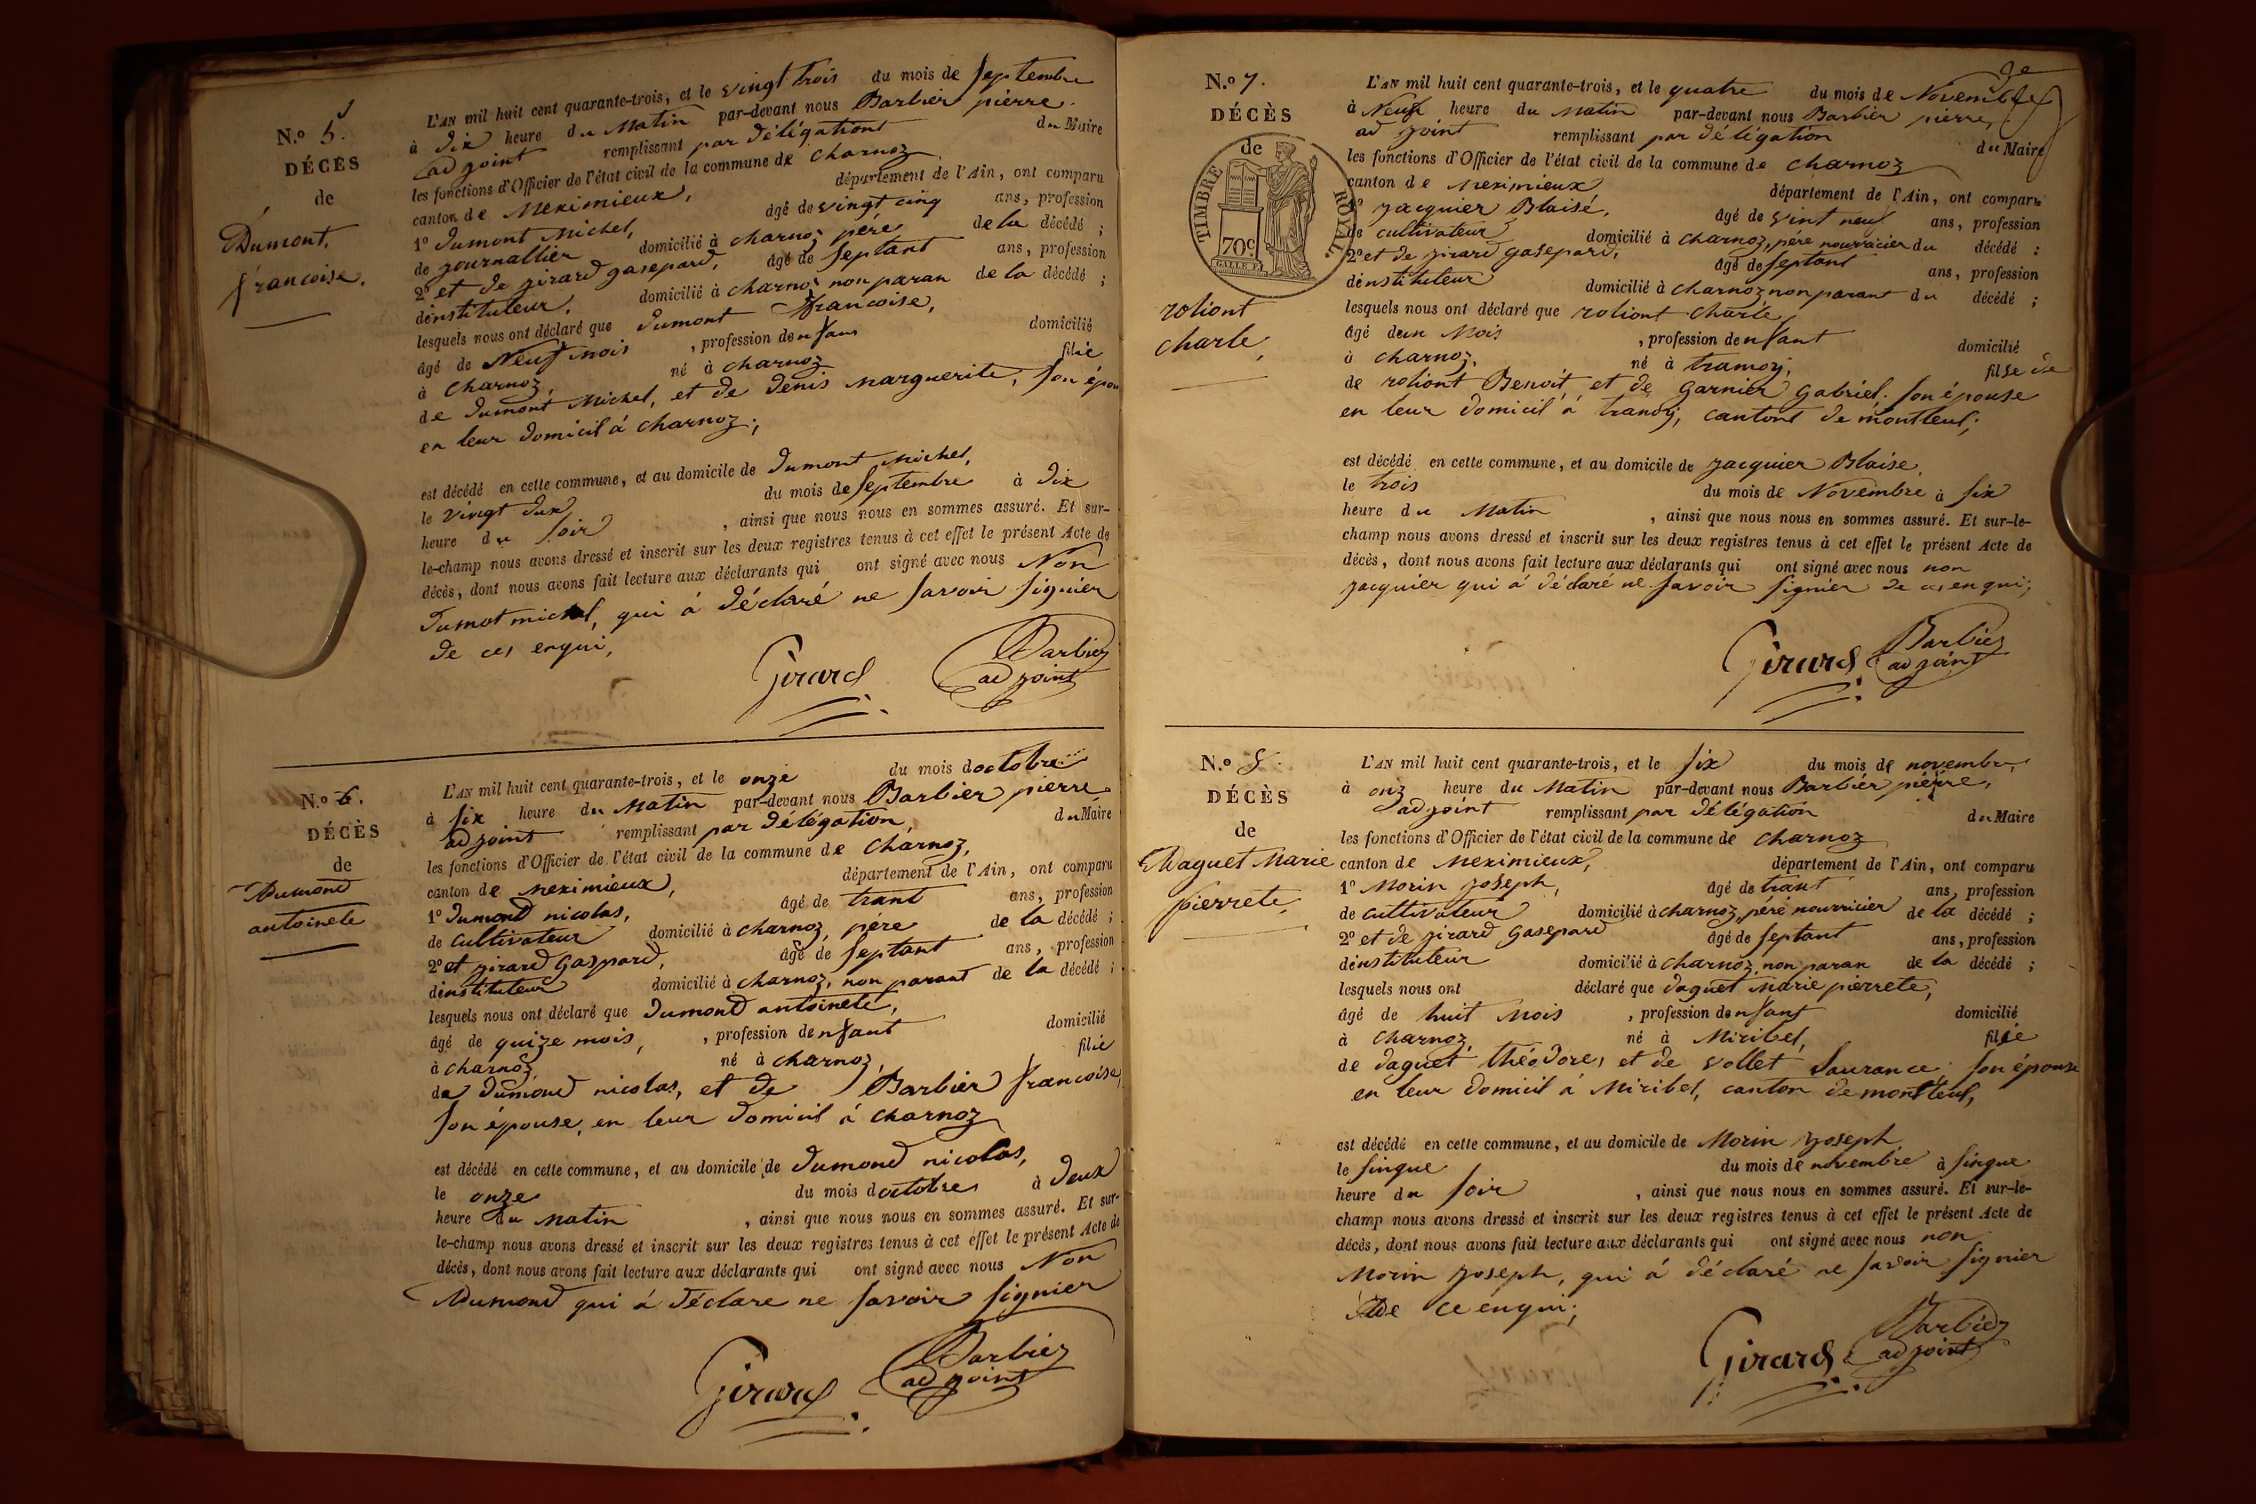 N.º 5.
DÉCÈS
de
Dumont,
francoise.
L'AN mil huit cent quarante-trois, et le vingt trois du mois de septembre
à dix heure du Matin par-devant nous Barbier pierre.
adjoint remplissant par délégationt du Maire
les fonctions d'Officier de l'état civil de la commune de charnoz
canton de Meximieux, département de l'Ain, ont comparu
1º dumont Michel, âgé de vingt cinq ans, profession
de journallier domicilié à charnoz père de la décédé ;
2º et de girard gasepard, âgé de septant ans, profession
dinstituteur, domicilié à charnoz non paran de la décédé ;
lesquels nous ont déclaré que dumont francoise,
âgé de Neuf mois , profession denfant domicilié
à Charnoz, né à charnoz filie
de dumont Michel, et de denis marguerite, son épou
en leur domicil á charnoz ;
est décédé en cette commune, et au domicile de dumont Michel,
le vingt dux du mois de septembre à dix
heure du soir , ainsi que nous nous en sommes assuré. Et sur-
le-champ nous avons dressé et inscrit sur les deux registres tenus à cet effet le présent Acte de
décès, dont nous avons fait lecture aux déclarants qui ont signé avec nous Non
dumot michel, qui á déclaré ne savoir signier
de ces enqui,
Girard Barbier
adjoint
N.º 6.
DÉCÈS
de
Dumond
antoinete
L'AN mil huit cent quarante-trois, et le onze du mois doctobre
à six heure du Matin par-devant nous Barbier pierre,
adjoint remplissant par délégation du Maire
les fonctions d'Officier de l'état civil de la commune de Charnoz,
canton de meximieux, département de l'Ain, ont comparu
1º dumond nicolas, âgé de trant ans, profession
de cultivateur domicilié à charnoz, père de la décédé ;
2º et girard Gaspard, âgé de septant ans, profession
dinstituteur domicilié à charnoz, non parant de la décédé ;
lesquels nous ont déclaré que dumond antoinete,
âgé de quize mois, , profession denfant domicilié
à charnoz né à charnoz, filie
de dumond nicolas, et de Barbier francoise,
son épouse, en leur domicil á charnoz
est décédé en cette commune, et au domicile de dumond nicolas,
le onze du mois doctobre à deux
heure du Matin , ainsi que nous nous en sommes assuré. Et sur-
le-champ nous avons dressé et inscrit sur les deux registres tenus à cet effet le présent Acte de
décès, dont nous avons fait lecture aux déclarants qui ont signé avec nous Non
Dumond qui á déclare ne savoir signier
Girard Barbier
adjoint
N.º 7.
DÉCÈS
de
TIMBRE ROYAL.
70c
roliont
charle,
L'AN mil huit cent quarante-trois, et le quatre du mois de Novembre
à Neuf heure du Matin par-devant nous Barbier pierre,
adjoint remplissant par délégation du Maire
les fonctions d'Officier de l'état civil de la commune de charnoz
canton de Meximieux département de l'Ain, ont comparu
1º jacquier Blaisé, âgé de vint neuf ans, profession
de cultivateur domicilié à charnoz, père nourracier du décédé :
2º et de girard gasepard, âgé de septant ans, profession
dinstituteur domicilié à charnoz non parant du décédé ;
lesquels nous ont déclaré que roliont charle,
âgé deun Mois , profession denfant domicilié
à charnoz, né à tramoy,
de roliont Benoit et de garnier gabriel. son épouse
en leur domicil á tramoy, cantont de montleul ;
est décédé en cette commune, et au domicile de jacquier Blaise,
le trois du mois de Novembre à six
heure du Matin , ainsi que nous nous en sommes assuré. Et sur-le-
champ nous avons dressé et inscrit sur les deux registres tenus à cet effet le présent Acte de
décès, dont nous avons fait lecture aux déclarants qui ont signé avec nous non
jacquier qui á déclaré ne savoir signier de ces enqui ;
Girard Barbier
adjoint
N.º 8.
DÉCÈS
de
Daguet Marie
pierrete,
L'AN mil huit cent quarante-trois, et le six du mois de novembre,
à onz heure du Matin par-devant nous Barbier pierre,
adjoint remplissant par délégation du Maire
les fonctions d'Officier de l'état civil de la commune de charnoz
canton de Meximieux, département de l'Ain, ont comparu
1º Morin joseph, âgé de trant ans, profession
de cultivateur domicilié à charnoz, péré nourricier de la décédé ;
2º et de girard Gasepard âgé de septant ans, profession
dinstituteur domicilié à charnoz, non paran de la décédé ;
lesquels nous ont déclaré que daguet Marie pierrete,
âgé de huit Mois , profession denfant domicilié
à charnoz, né à Miribel, filie
de daguet théodore, et de vollet Laurance, son épouse
en leur domicil a Miribel, canton de montleul,
est décédé en cette commune, et au domicile de Morin joseph,
le sinque du mois de novembre à sinque
heure du soir , ainsi que nous nous en sommes assuré. Et sur-le-
champ nous avons dressé et inscrit sur les deux registres tenus à cet effet le présent Acte de
décès, dont nous avons fait lecture aux déclarants qui ont signé avec nous non
Morin joseph, qui á déclaré ne savoir signier
de ce enqui ;
Girard Barbier
adjoint